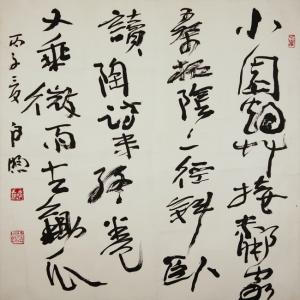 小園煙艸接鄰家
桑柘陰々一徑斜臥
讀陶詩未終卷
又乘微雨去鋤瓜
丙子夏